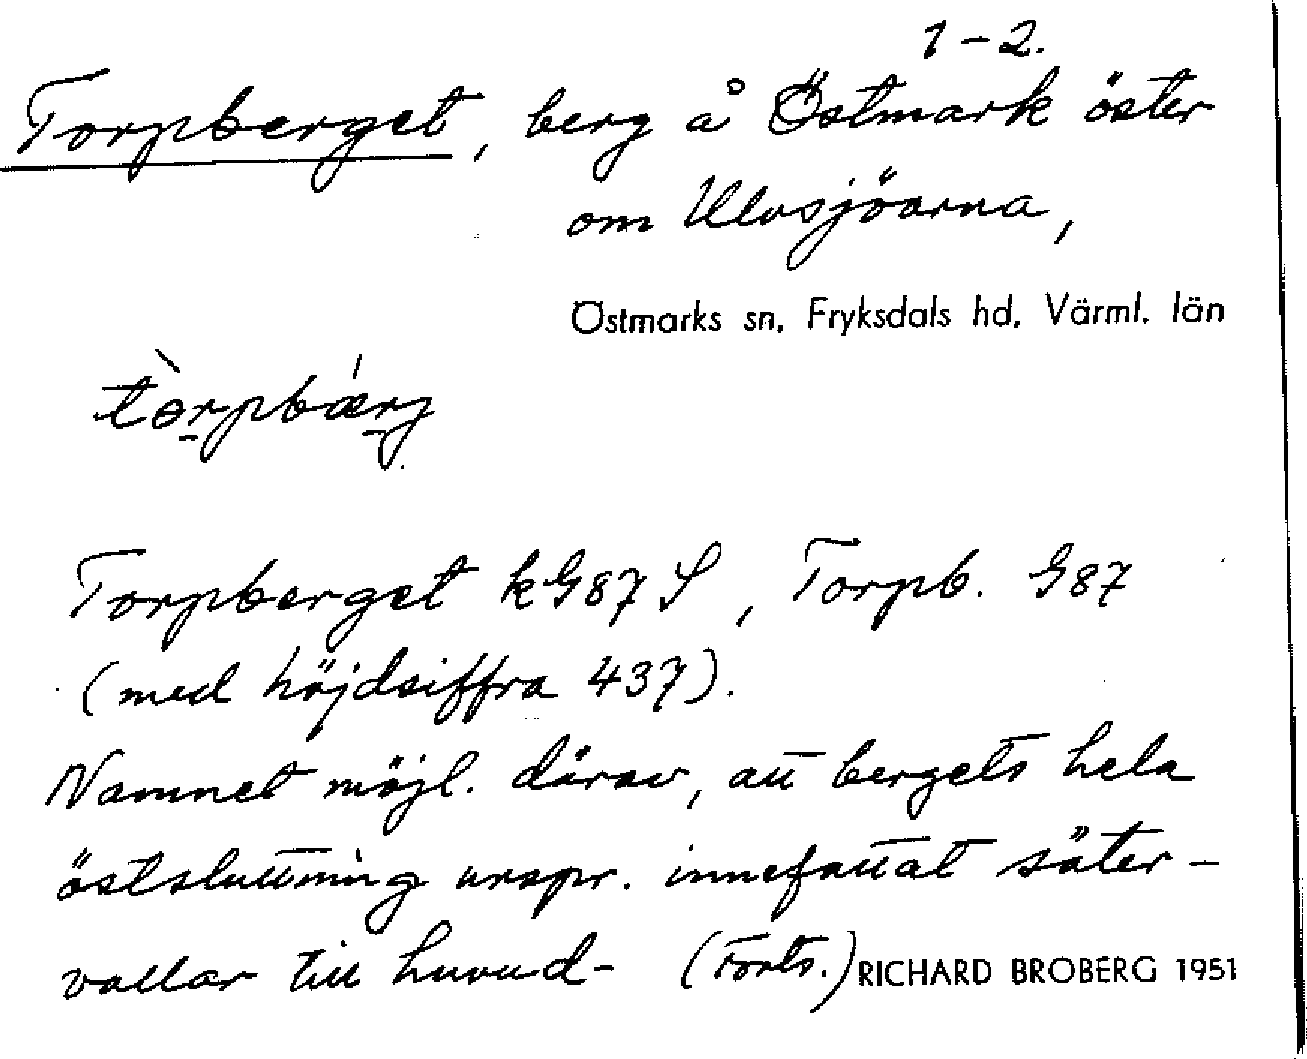 1-2.
Torpberget, berg å Östmark öster
om Ulvsjöarna,
Östmarks sn, Fryksdals hd, Värml. län
tòrpbǽrj
Torpberget kG87 S, Torpb. G87
(med höjdsiffra 437).
Namnet möjl. därav, att bergets hela
östsluttning urspr. innefattat säter-
vallar till huvud- (Forts.) RICHARD BROBERG 1951